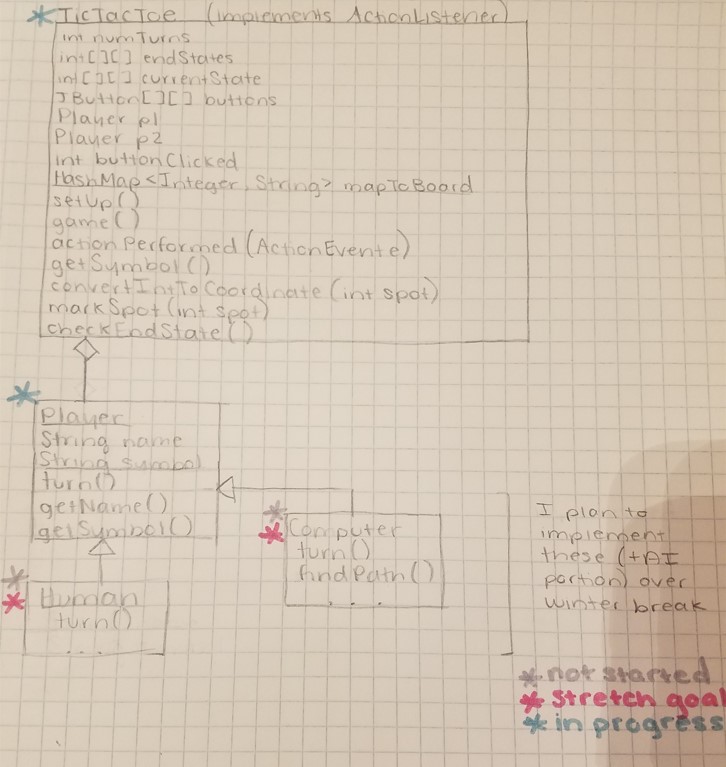 * TicTacToe (implements ActionListener)
int numTurns
int[][] endStates
int[][] currentState
JButton[][] buttons
Player p1
Player p2
int buttonClicked
HashMap<Integer, String> mapToBoard
setUp()
game()
actionPerformed(ActionEvent e)
getSymbol()
convertIntToCoordinate(int spot)
markSpot(int spot)
checkEndState()
*
Player
String name
String symbol
turn()
getName()
getSymbol()
*
* Computer
turn()
findPath()
...
*
* Human
turn()
...
I plan to
implement
these (+AI
portion) over
winter break
* not started
* stretch goal
* in progress